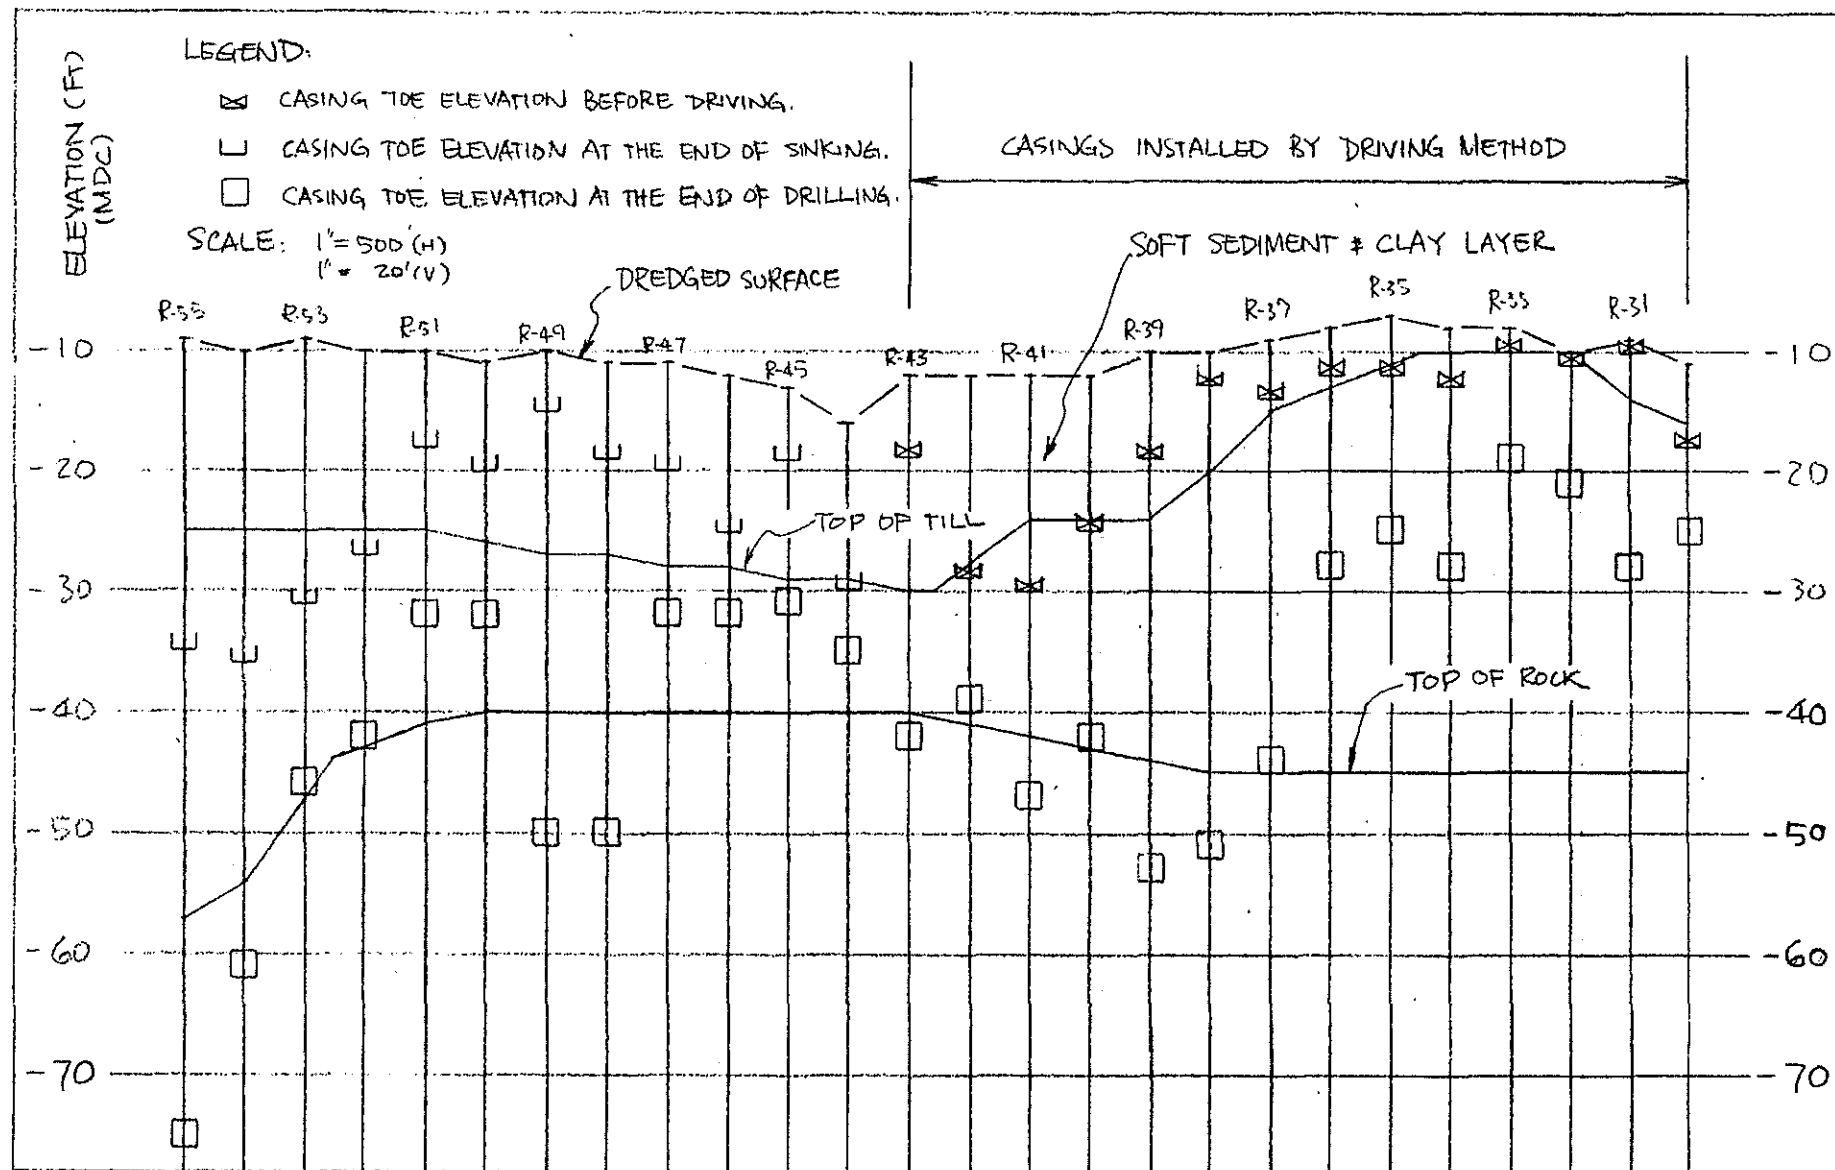 LEGEND:
CASING TOE ELEVATION BEFORE DRIVING.
CASING TOE ELEVATION AT THE END OF SINKING.
CASING TOE ELEVATION AT THE END OF DRILLING.
SCALE: 1"= 500'(H)
1" = 20'(V)
ELEVATION (FT)
(MDC)
CASINGS INSTALLED BY DRIVING METHOD
SOFT SEDIMENT & CLAY LAYER
DREDGED SURFACE
R-55
R-53
R-51
R-49
R-47
R-45
R-43
R-41
R-39
R-37
R-35
R-33
R-31
-10
-10
-20
-20
TOP OF TILL
-30
-30
TOP OF ROCK
-40
-40
-50
-50
-60
-60
-70
-70